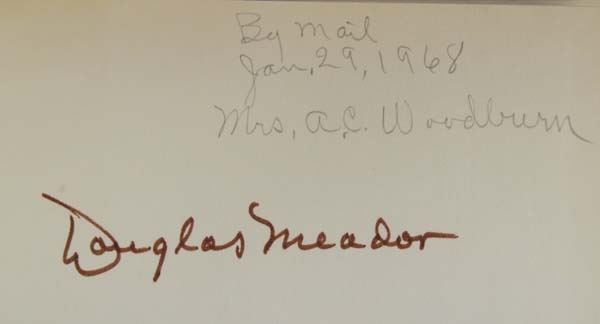 By Mail
Jan, 29, 1968
Mrs, A.C. Woodburn
Douglas Meador